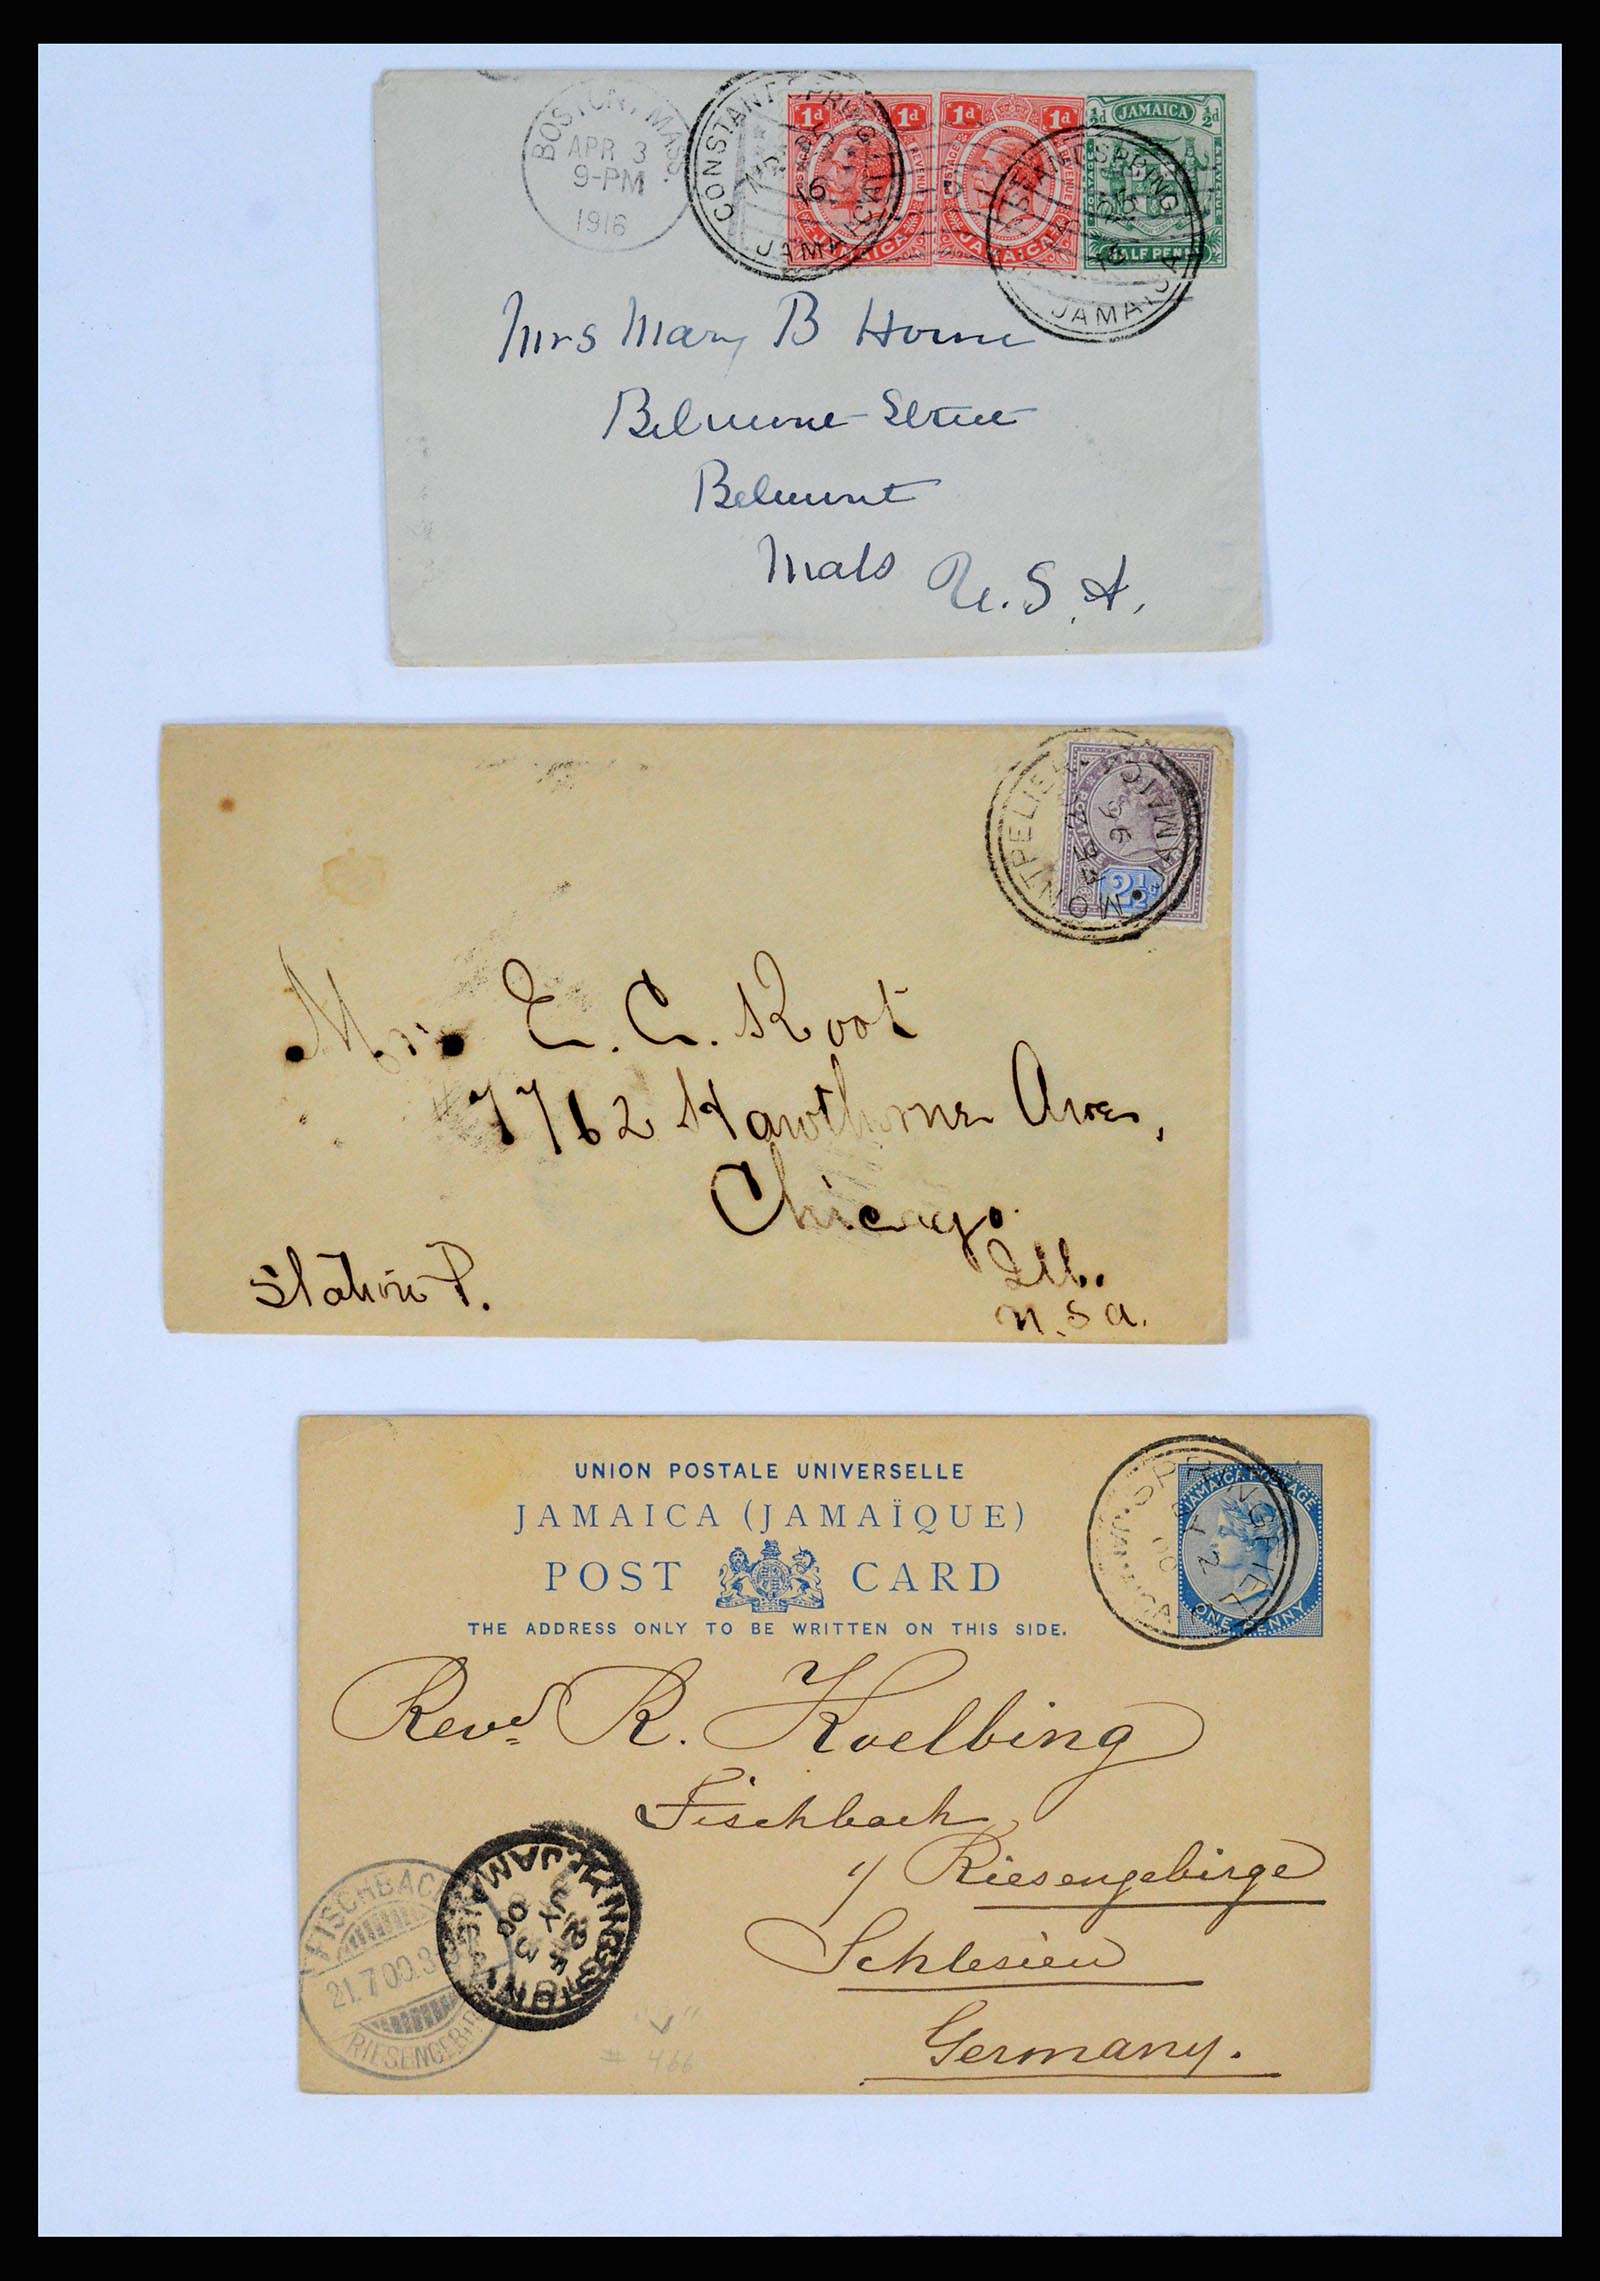 BOSTON, MASS.
APR 3
9-PM
1916
CONSTANT SPRING
16
JAMAICA
1d 1d
POSTAGE REVENUE
JAMAICA
1d 1d
POSTAGE REVENUE
JAMAICA
½d JAMAICA ½d
HALF PENNY
CONSTANT SPRING
16
JAMAICA
Mrs Mary B Horne
Belmont Street
Belmont
Mass U.S.A.
MONTPELIER
96
JAMAICA
2½d
E. C. Root
7762 Hawthorne Ave,
Chicago
Ills.
U.S.A.
Station P.
UNION POSTALE UNIVERSELLE
JAMAICA (JAMAÏQUE)
POST CARD
THE ADDRESS ONLY TO BE WRITTEN ON THIS SIDE.
JAMAICA POSTAGE
ONE PENNY
SPRINGFIELD
JY 2
00
JAMAICA
Revd. R. Koelbing
Fischbach
i/ Riesengebirge
Schlesien
Germany.
FISCHBACH
21.7.00.
RIESENGEB
KINGSTON
JAMAICA
JY 3
00
"V"
# 466